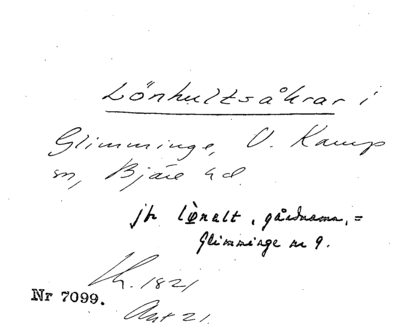 Lönhultsåkrar i
Glimminge, V. Karup
sn, Bjäre hd.
jfr lønalt, gårdnamn, =
Glimminge nr 9.
Lh. 1821
Akt 21.
Nr 7099.